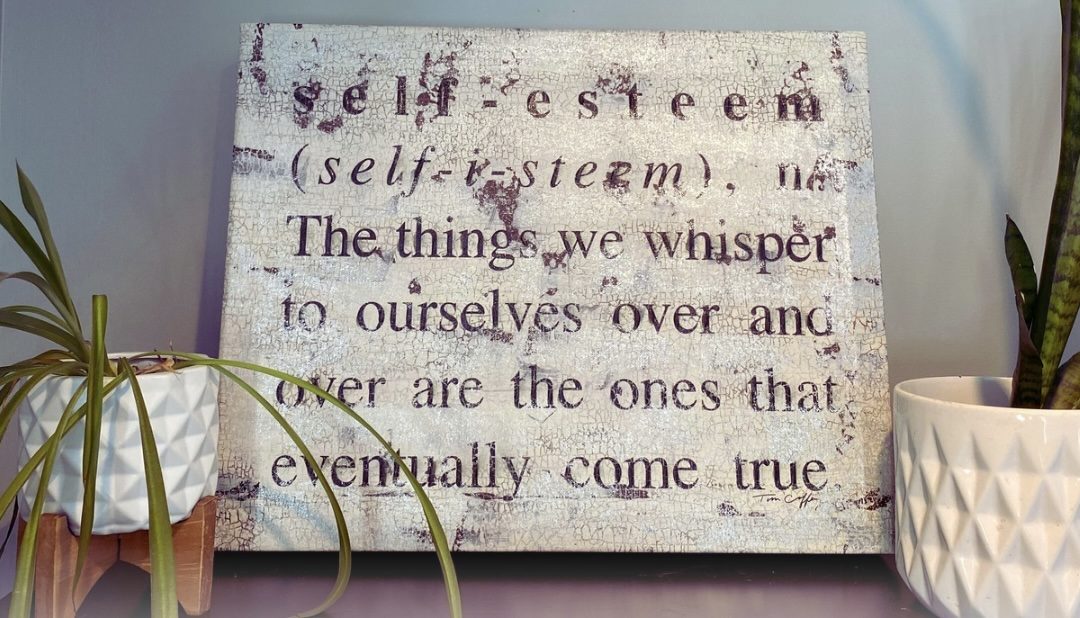 self-esteem
(self-i-steem), n.
The things we whisper
to ourselves over and
over are the ones that
eventually come true